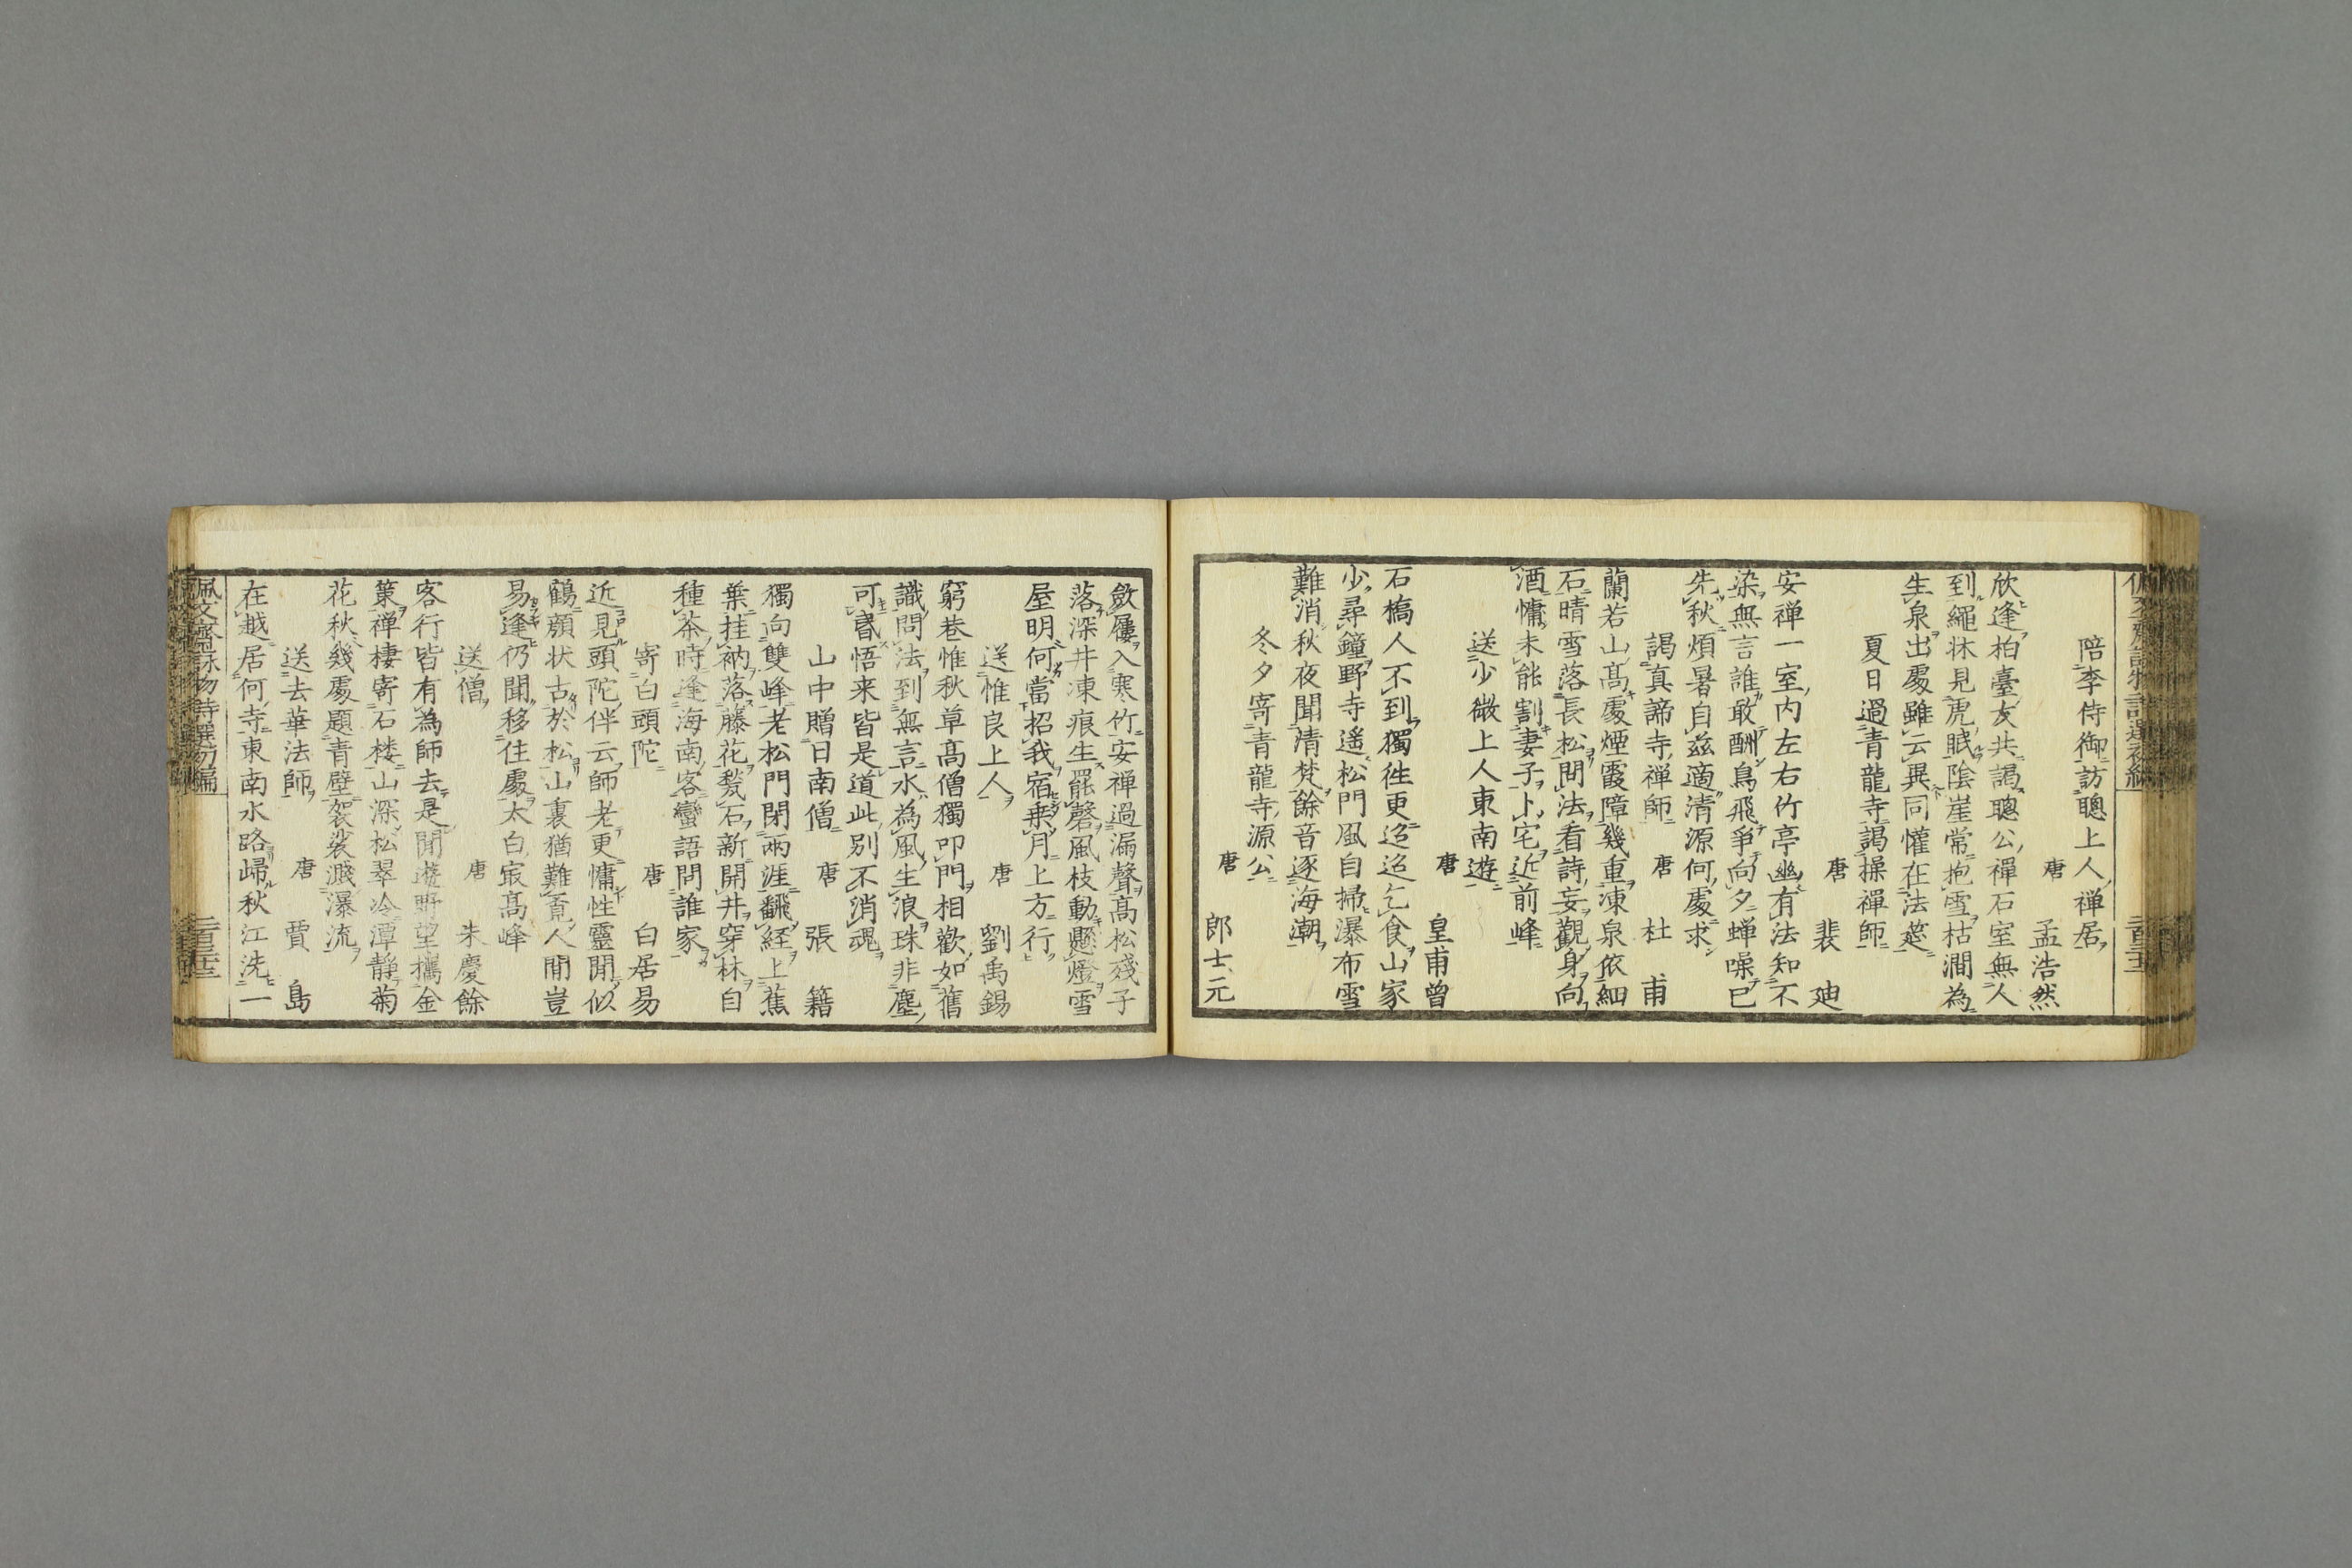 陪李侍御訪聰上人禅居
唐　孟浩然
欣逢柏臺友共謁聰公禪石室無人
到繩牀見虎眠陰崖常抱雪枯澗為
生泉出處雖云異同懽在法莚
夏日過青龍寺謁操禪師
唐　裴　廸
安禅一室内左右竹亭幽有法知不
染無言誰敢酬鳥飛爭向夕蝉噪已
先秋煩暑自茲適清源何處求
謁真諦寺禅師　唐　杜　甫
蘭若山髙處煙霞障幾重凍泉依細
石晴雪落長松問法看詩妄觀身向
酒慵未能割妻子卜宅近前峰
送少微上人東南遊
唐　皇甫曽
石橋人不到獨徃更迢迢乞食山家
少尋鐘野寺遙松門風自掃瀑布雪
難消秋夜聞清梵餘音逐海潮
冬夕寄青龍寺源公
唐　郎士元
斂屨入寒竹安禅過漏聲髙松殘子
落深井凍痕生罷磬風枝動懸燈雪
屋明何當招我宿乗月上方行
送惟良上人　唐　劉禹錫
窮巷惟秋草髙僧獨叩門相歡如舊
識問法到無言水為風生浪珠非塵
可昏悟来皆是道此别不消魂
山中贈日南僧　唐　張　籍
獨向雙峰老松門閉兩涯飜経上蕉
葉挂衲落藤花甃石新開井穿林自
種茶時逢海南客蠻語問誰家
寄白頭陀　唐　白居易
近見頭陀伴云師老更慵性靈閒似
鶴顔状古於松山裏猶難覓人間豈
易逢仍聞移住處太白㝡髙峰
送僧　唐　朱慶餘
客行皆有為師去是閒遊野望攜金
策禅棲寄石楼山深松翠冷潭静菊
花秋幾處題青壁袈裟濺瀑流
送去華法師　唐　賈　島
在越居何寺東南水路歸秋江洗一
佩文齋詠物詩選初編